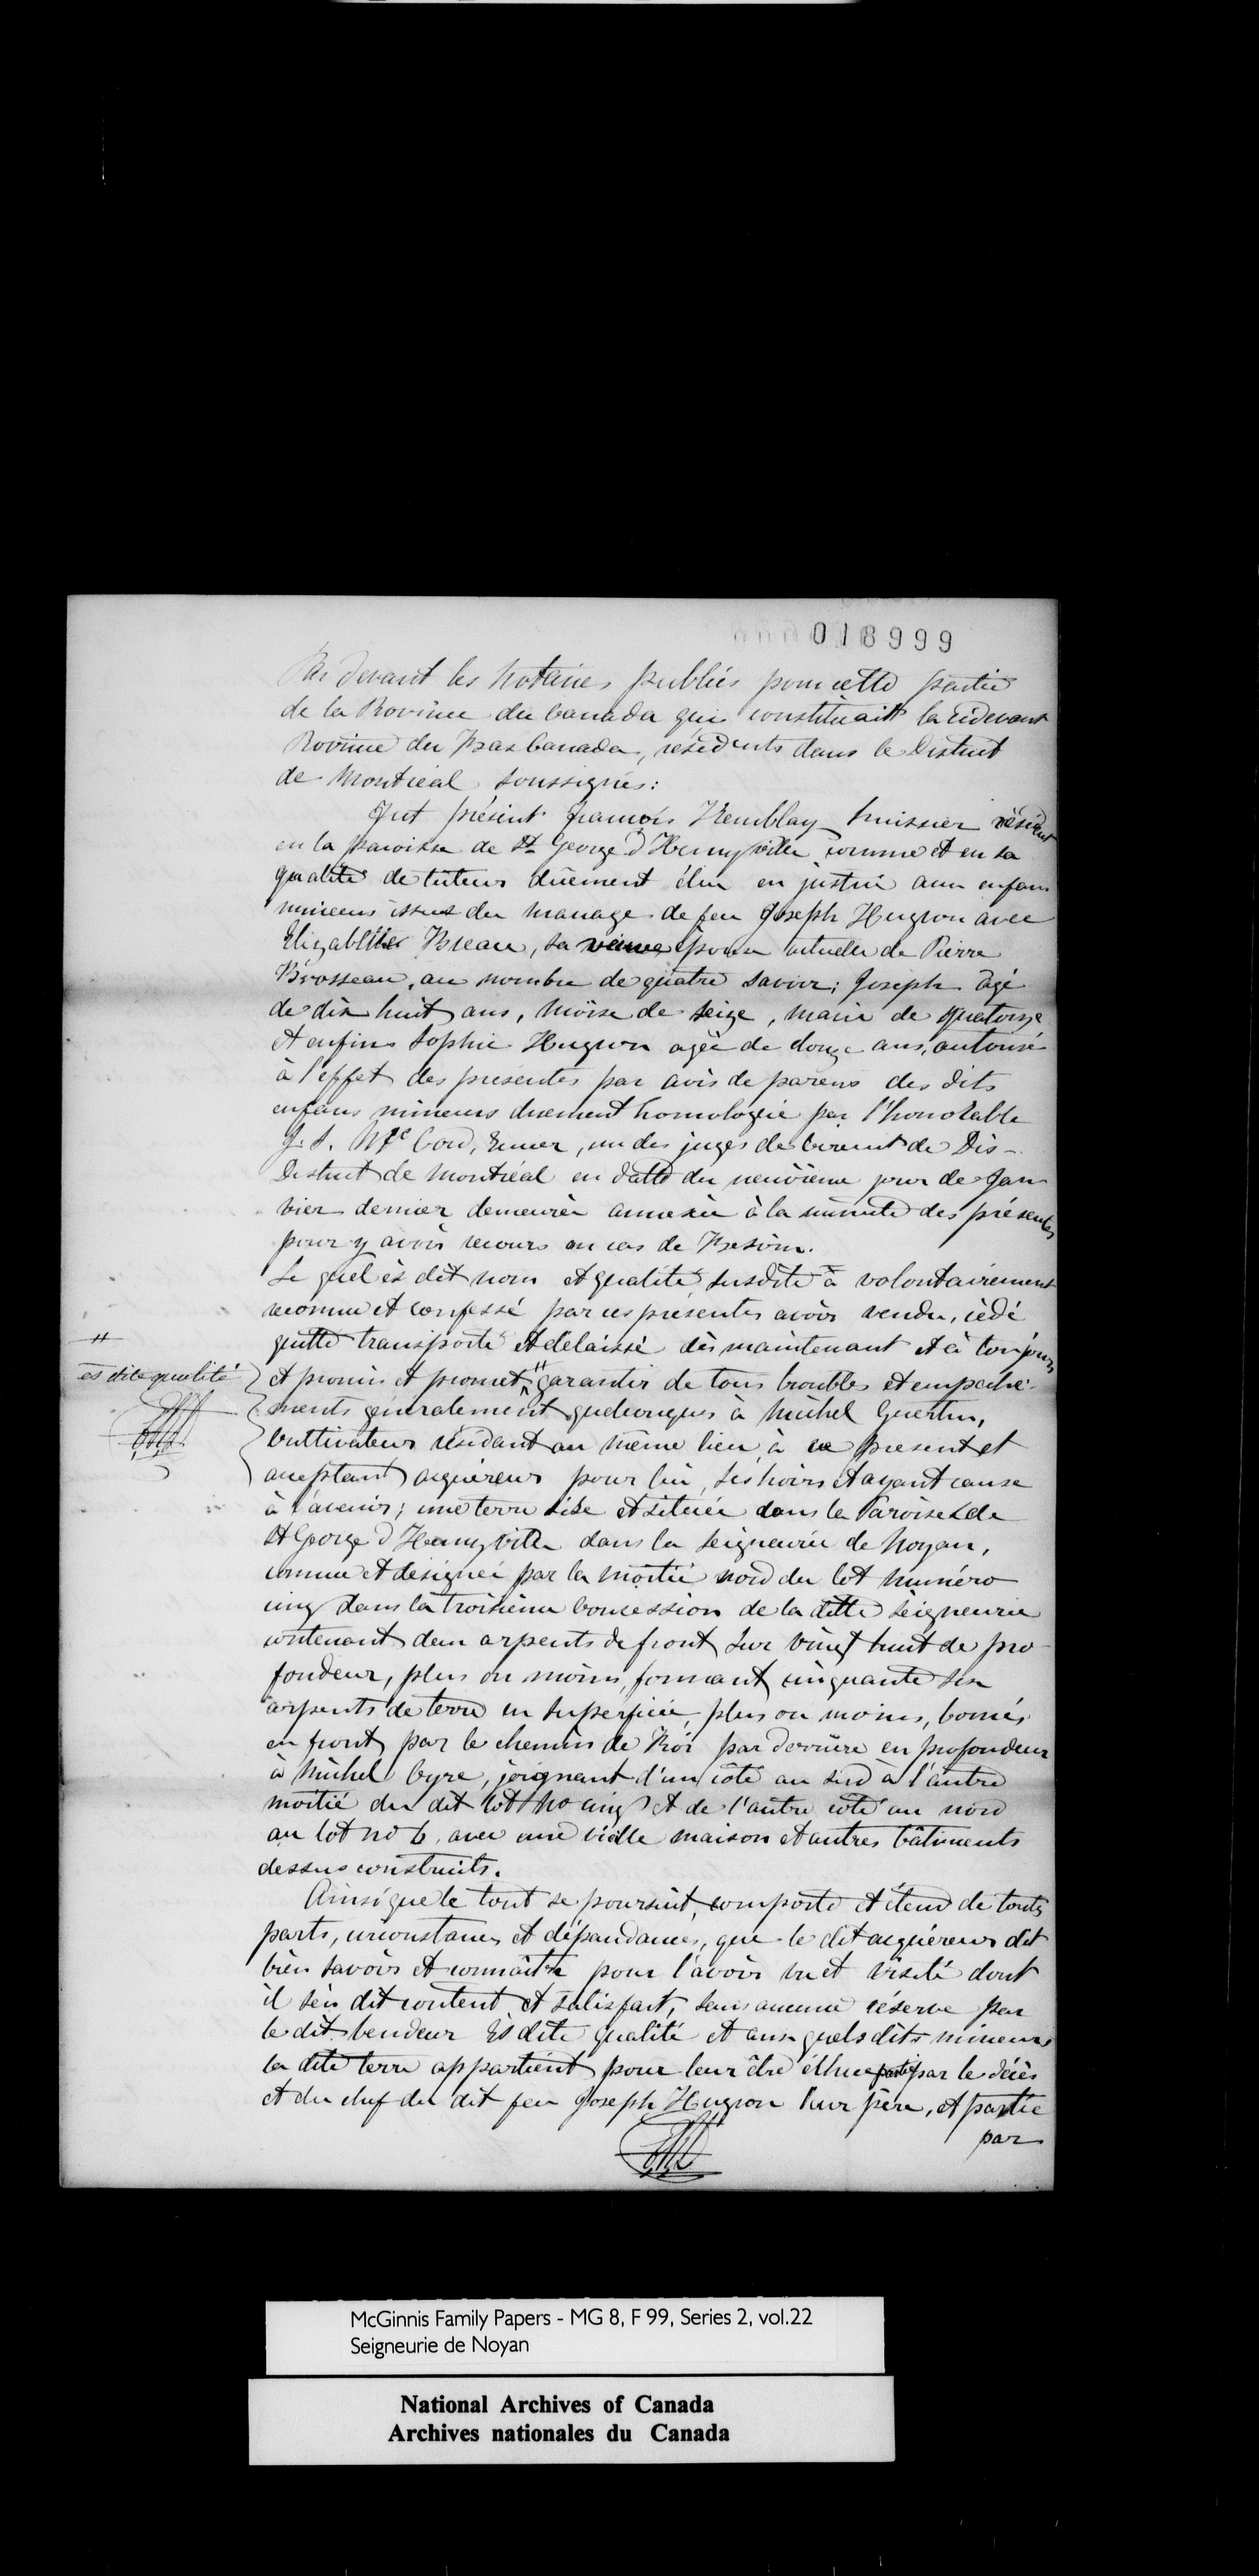 018999
Par devant les Notaires publics pour cette partie
de la Province du Canada qui constituait la cidevant
Province du Bas Canada, residents dans le District
de Montreal soussignés:
Fut présent François Tremblay huissier résidant
en la paroisse de St George d'Henryville comme et en sa
qualité de tuteur duement élu en justice aux enfans
mineurs issus du mariage de feu Joseph Hugron avec
Elizabethe Breau, sa veuve épouse actuelle de Pierre
Brosseau, au nombre de quatre savoir; Joseph agé
de dix huit ans, Moïse de seize, Marie de quatorze
et enfin Sophie Hugron agée de douze ans, autorisé
à l'effet des presentes par avis de parens des dits
enfans mineurs duement homologué par l'honorable
J. S. McCord, Ecuier, un des juges de Circuit de Dis-
District de Montréal en datte du neuvième jour de Jan
vier dernier demeurée annexée à la minute des présentes
pour y avoir recours au cas de Besoin.
Le quel ès dit nom et qualité susdite à volontairement
reconnu et confessé par ces presentes avoir vendu, cédé
quitté transporté et délaissé dès maintenant et à toujours
et promis et promet # garantir de tous troubles et empeche-
#
es dite qualité
ments généralement quelconques à Michel Guertin,
Cultivateur résidant au même lieu à ce present et
acceptant acquéreur pour lui, ses hoirs et ayant cause
à l'avenir; une terre sise et située dans la Paroisse de
St George d'Henryville dans la Seigneurie de Noyan,
connue et désignée par la moitié nord du lot numéro
cinq dans la troisième Concession de la ditte Seigneurie
contenant deux arpents de front sur vingt huit de pro
fondeur, plus ou moins, formant cinquante six
arpents de terre en superficie, plus ou moins, bornés
en front par le chemin de Roi par derrière en profondeur
à Michel Cyre, joignant d'un côté au sud à l'autre
moitié du dit lot No cinq et de l'autre côté au nord
au lot no 6, avec une vielle maison et autres bâtiments
dessus construits.
Ainsi que le tout se poursuit, comporte et étend de toutes
parts, circonstances et dépandances, que le dit acquéreur dit
bien savoir et connaitre pour l'avoir vu et visité dont
il s'en dit content et satisfait, sans aucune réserve par
le dit vendeur Es dite qualité et aux quels dits mineurs
la dite terre appartient pour leur être échue partie par le décès
et du chef du dit feu Joseph Hugron leur père, et partie
par
McGinnis Family Papers - MG 8, F 99, Series 2, vol.22
Seigneurie de Noyan
National Archives of Canada
Archives nationales du Canada